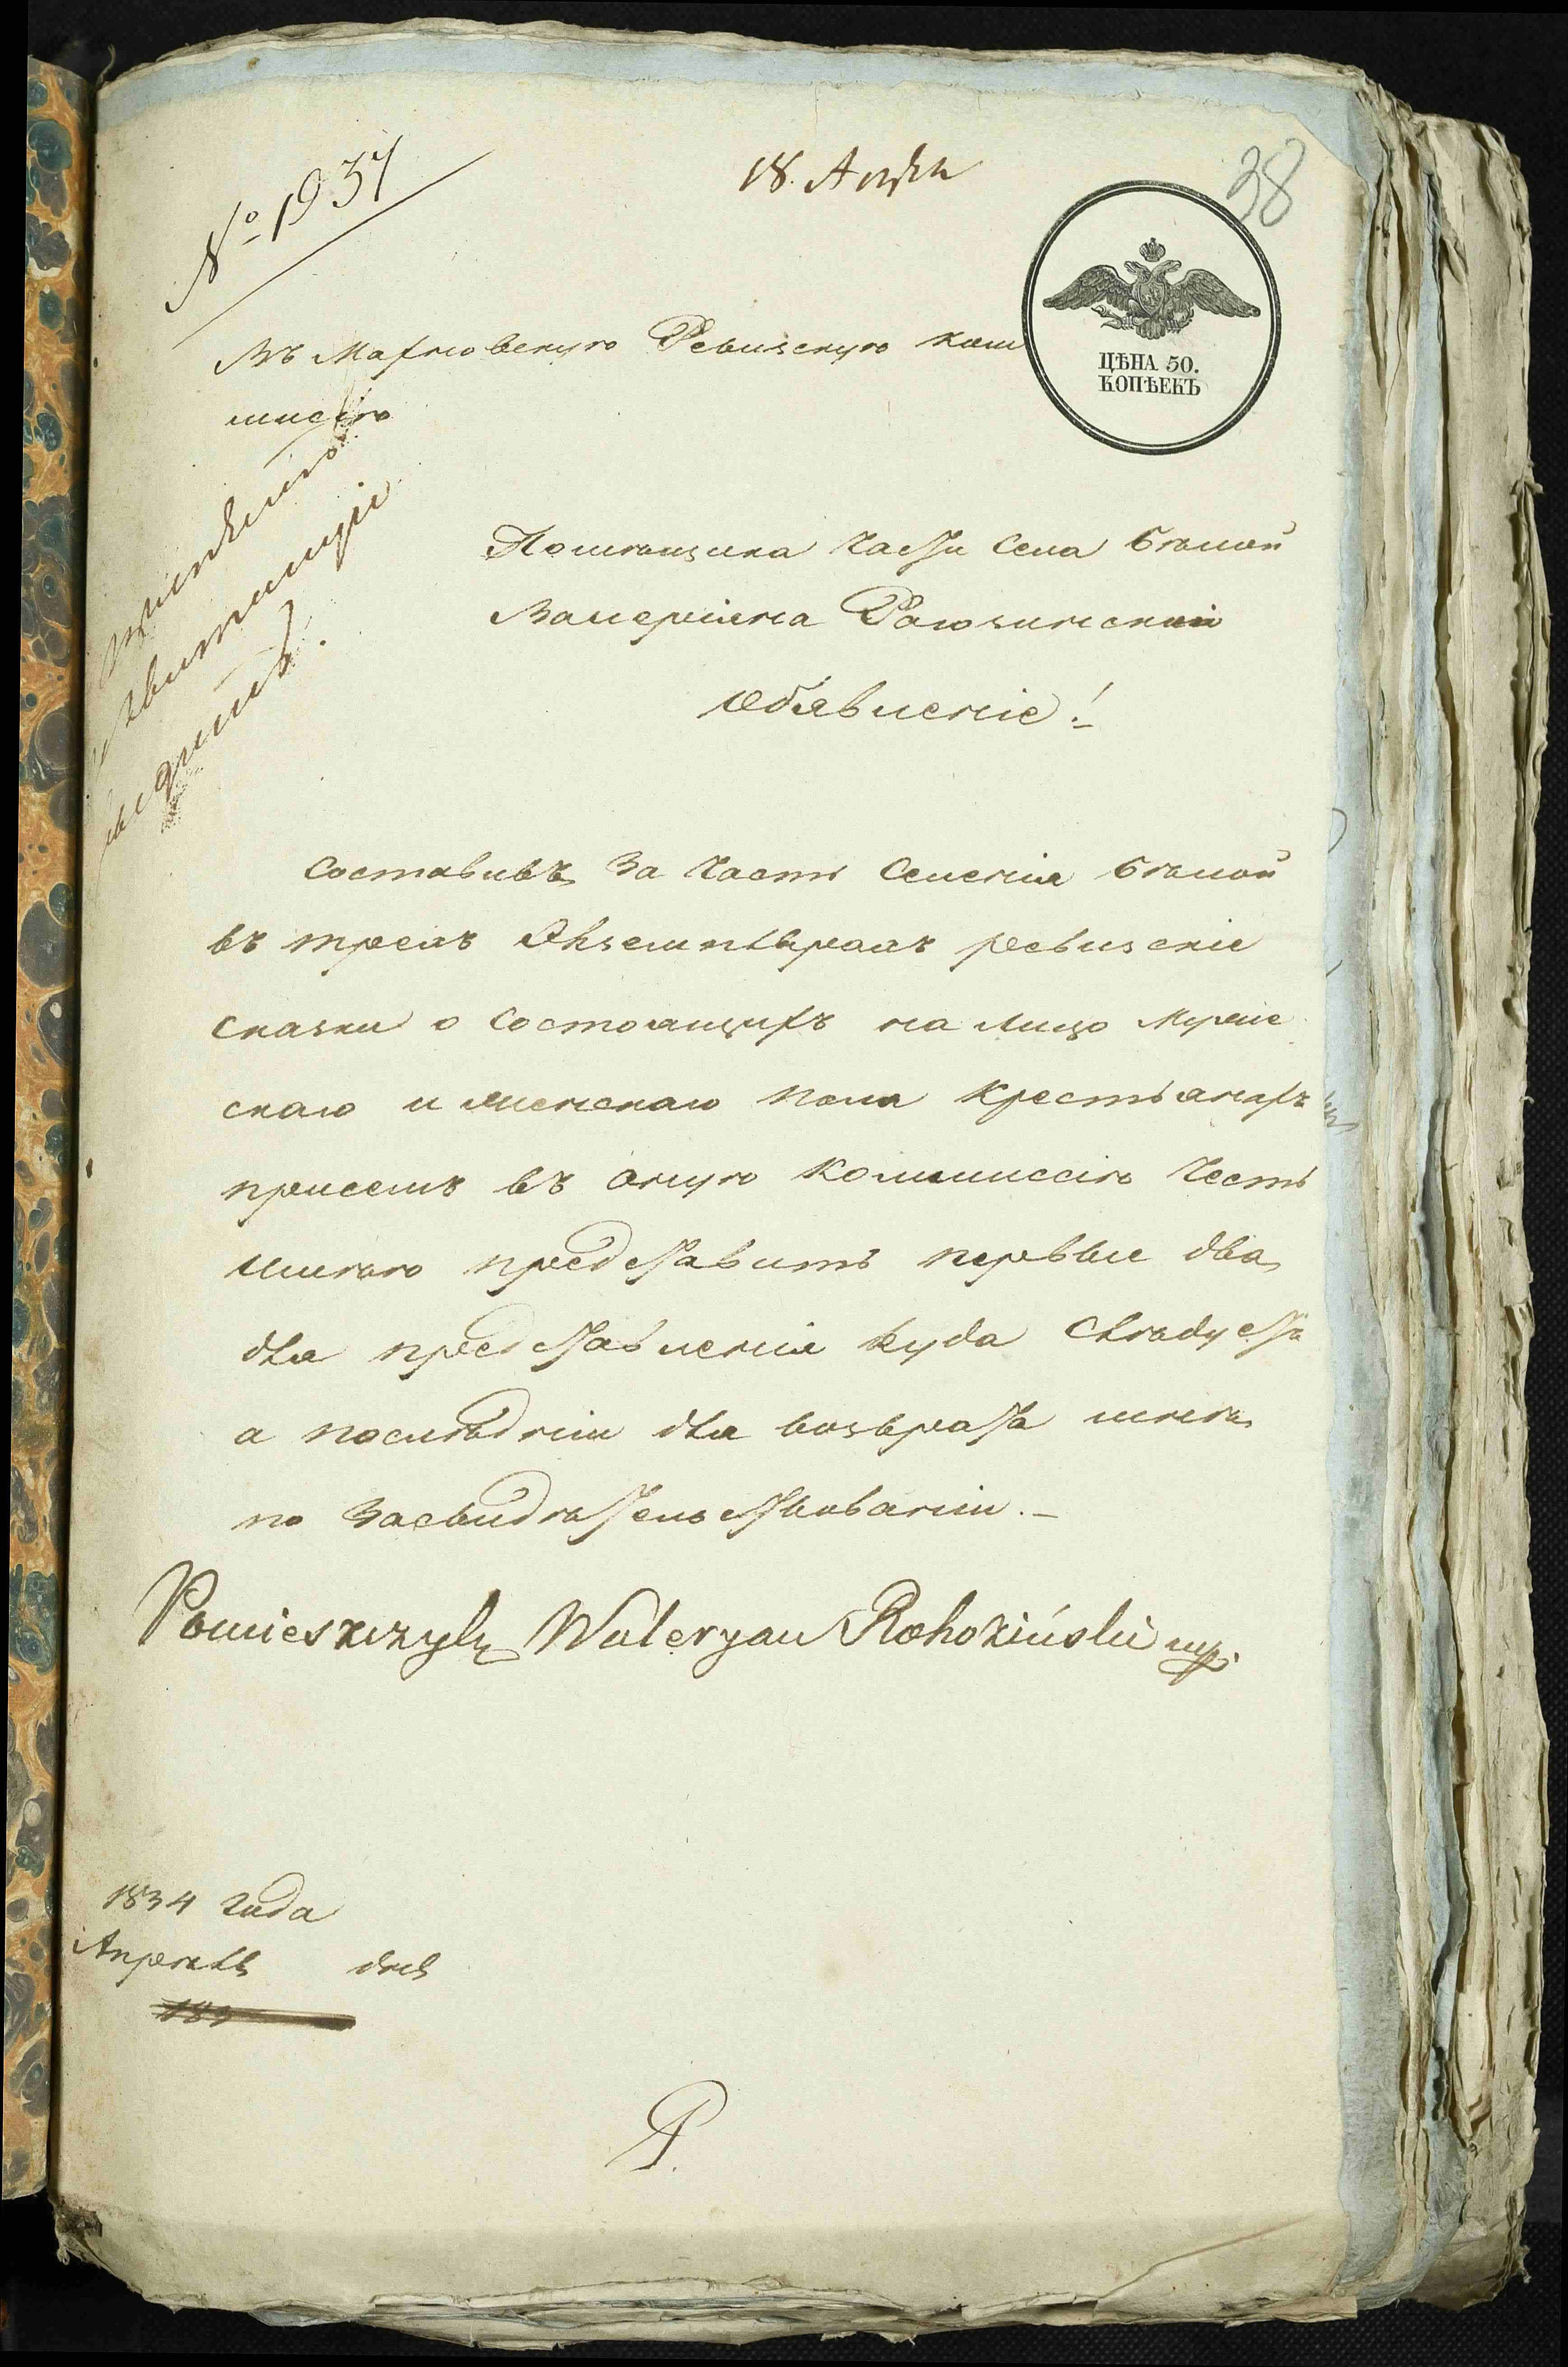 № 1937
18. Апрѣля
38
ЦѢНА 50.
КОПѢЕКЪ
Въ Махновскую Ревизскую ком
мисѣю
Помѣщика части села Бѣлой
Валеріяна Рагозинскій
Обявленіе!
Составивъ за часть селенія Бѣлой
въ трехъ Экземплярахъ ревизскіе
сказки о состоящихъ на лицо Муже
скаго и женскаго пола крестьянахъ
присемъ въ оную коммиссію честь
имѣю представить первые два
для представленія куда слѣдуетъ
а послѣдній для возврата мнѣ
по засвидѣтельствованіи. –
Pomieszczyk Waleryan Rohoziński mp.
1834 года
Апрѣля дня